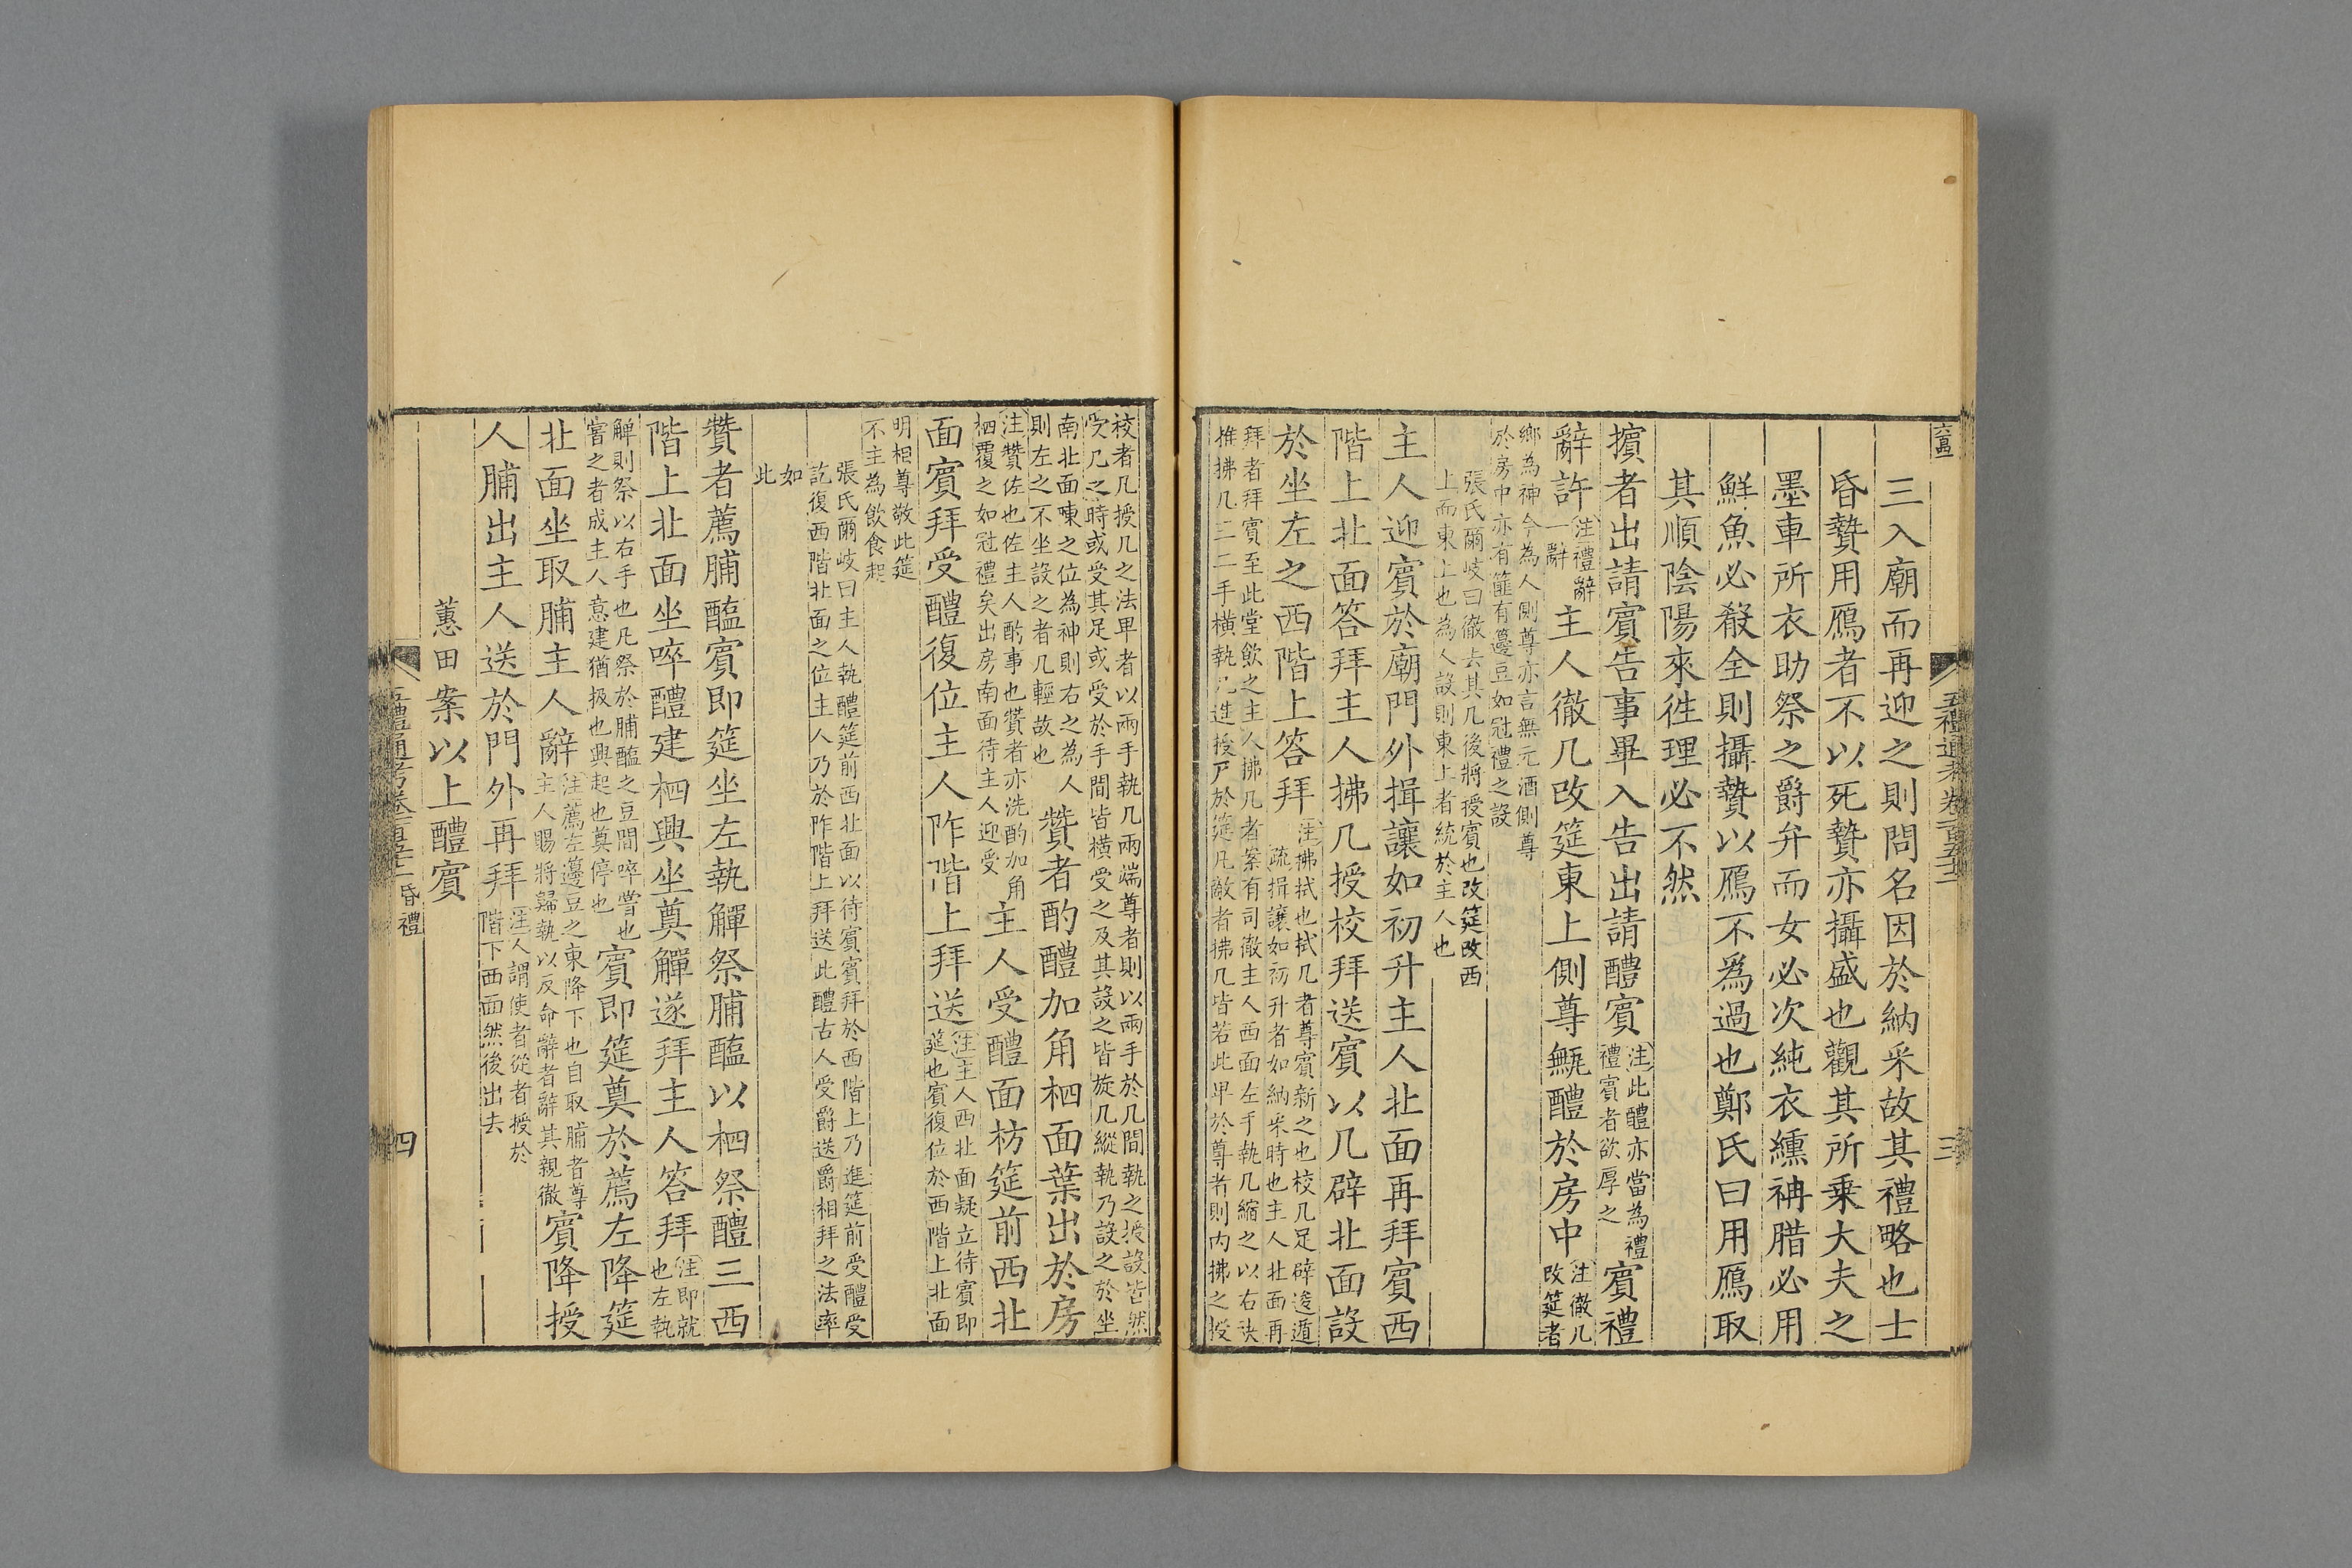 三入廟而再迎之則問名因於納采故其禮略也士
昏贄用鴈者不以死贄亦攝盛也觀其所乗大夫之
墨車所衣助祭之爵弁而女必次純衣纁袡腊必用
鮮魚必殺全則攝贄以鴈不爲過也鄭氏曰用鴈取
其順陰陽來徃理必不然
擯者出請賓告事畢入告出請醴賓注此醴亦當為禮
禮賓者欲厚之賓禮
辭許注禮辭
一辭主人徹几改筵東上側尊甒醴於房中注徹几
改筵者
鄉為神今為人側尊亦言無元酒側尊
於房中亦有篚有籩豆如冠禮之設
張氏爾岐曰徹去其几後將授賓也改筵改西
上而東上也為人設則東上者統於主人也
主人迎賓於廟門外揖讓如初升主人北面再拜賓西
階上北面答拜主人拂几授校拜送賓以几辟北面設
於坐左之西階上答拜注拂拭也拭几者尊賓新之也校几足辟逡遁
疏揖讓如初升者如納采時也主人北面再
拜者拜賓至此堂飲之主人拂几者案有司徹主人西面左手執几縮之以右袂
推拂几三二手橫執几進授尸於筵凡敵者拂几皆若此卑於尊者則内拂之授
校者几授几之法卑者以兩手執几兩端尊者則以兩手於几間執之授設皆然
受几之時或受其足或受於手間皆橫受之及其設之皆旋几縱執乃設之於坐
南北面陳之位為神則右之為人
則左之不坐設之者几輕故也贊者酌醴加角柶面葉出於房
注贊佐也佐主人酌事也贊者亦洗酌加角
柶覆之如冠禮矣出房南面待主人迎受主人受醴面枋筵前西北
面賓拜受醴復位主人阼階上拜送注主人西北面疑立待賓即
筵也賓復位於西階上北面
明相尊敬此筵
不主為飲食起
張氏爾岐曰主人執醴筵前西北面以待賓賓拜於西階上乃進筵前受醴受
訖復西階北面之位主人乃於阼階上拜送此醴古人受爵送爵相拜之法率
如
此
贊者薦脯醢賓即筵坐左執觶祭脯醢以柶祭醴三西
階上北面坐啐醴建柶興坐奠觶遂拜主人答拜注即就
也左執
觶則祭以右手也凡祭於脯醢之豆間啐嘗也
嘗之者成主人意建猶扱也興起也奠停也賓即筵奠於薦左降筵
北面坐取脯主人辭注薦左籩豆之東降下也自取脯者尊
主人賜將歸執以反命辭者辭其親徹賓降授
人脯出主人送於門外再拜注人謂使者從者授於
階下西面然後出去
蕙田案以上醴賓
五禮通考卷一百五十二
三
五禮通考卷一百五十二 昏禮
四